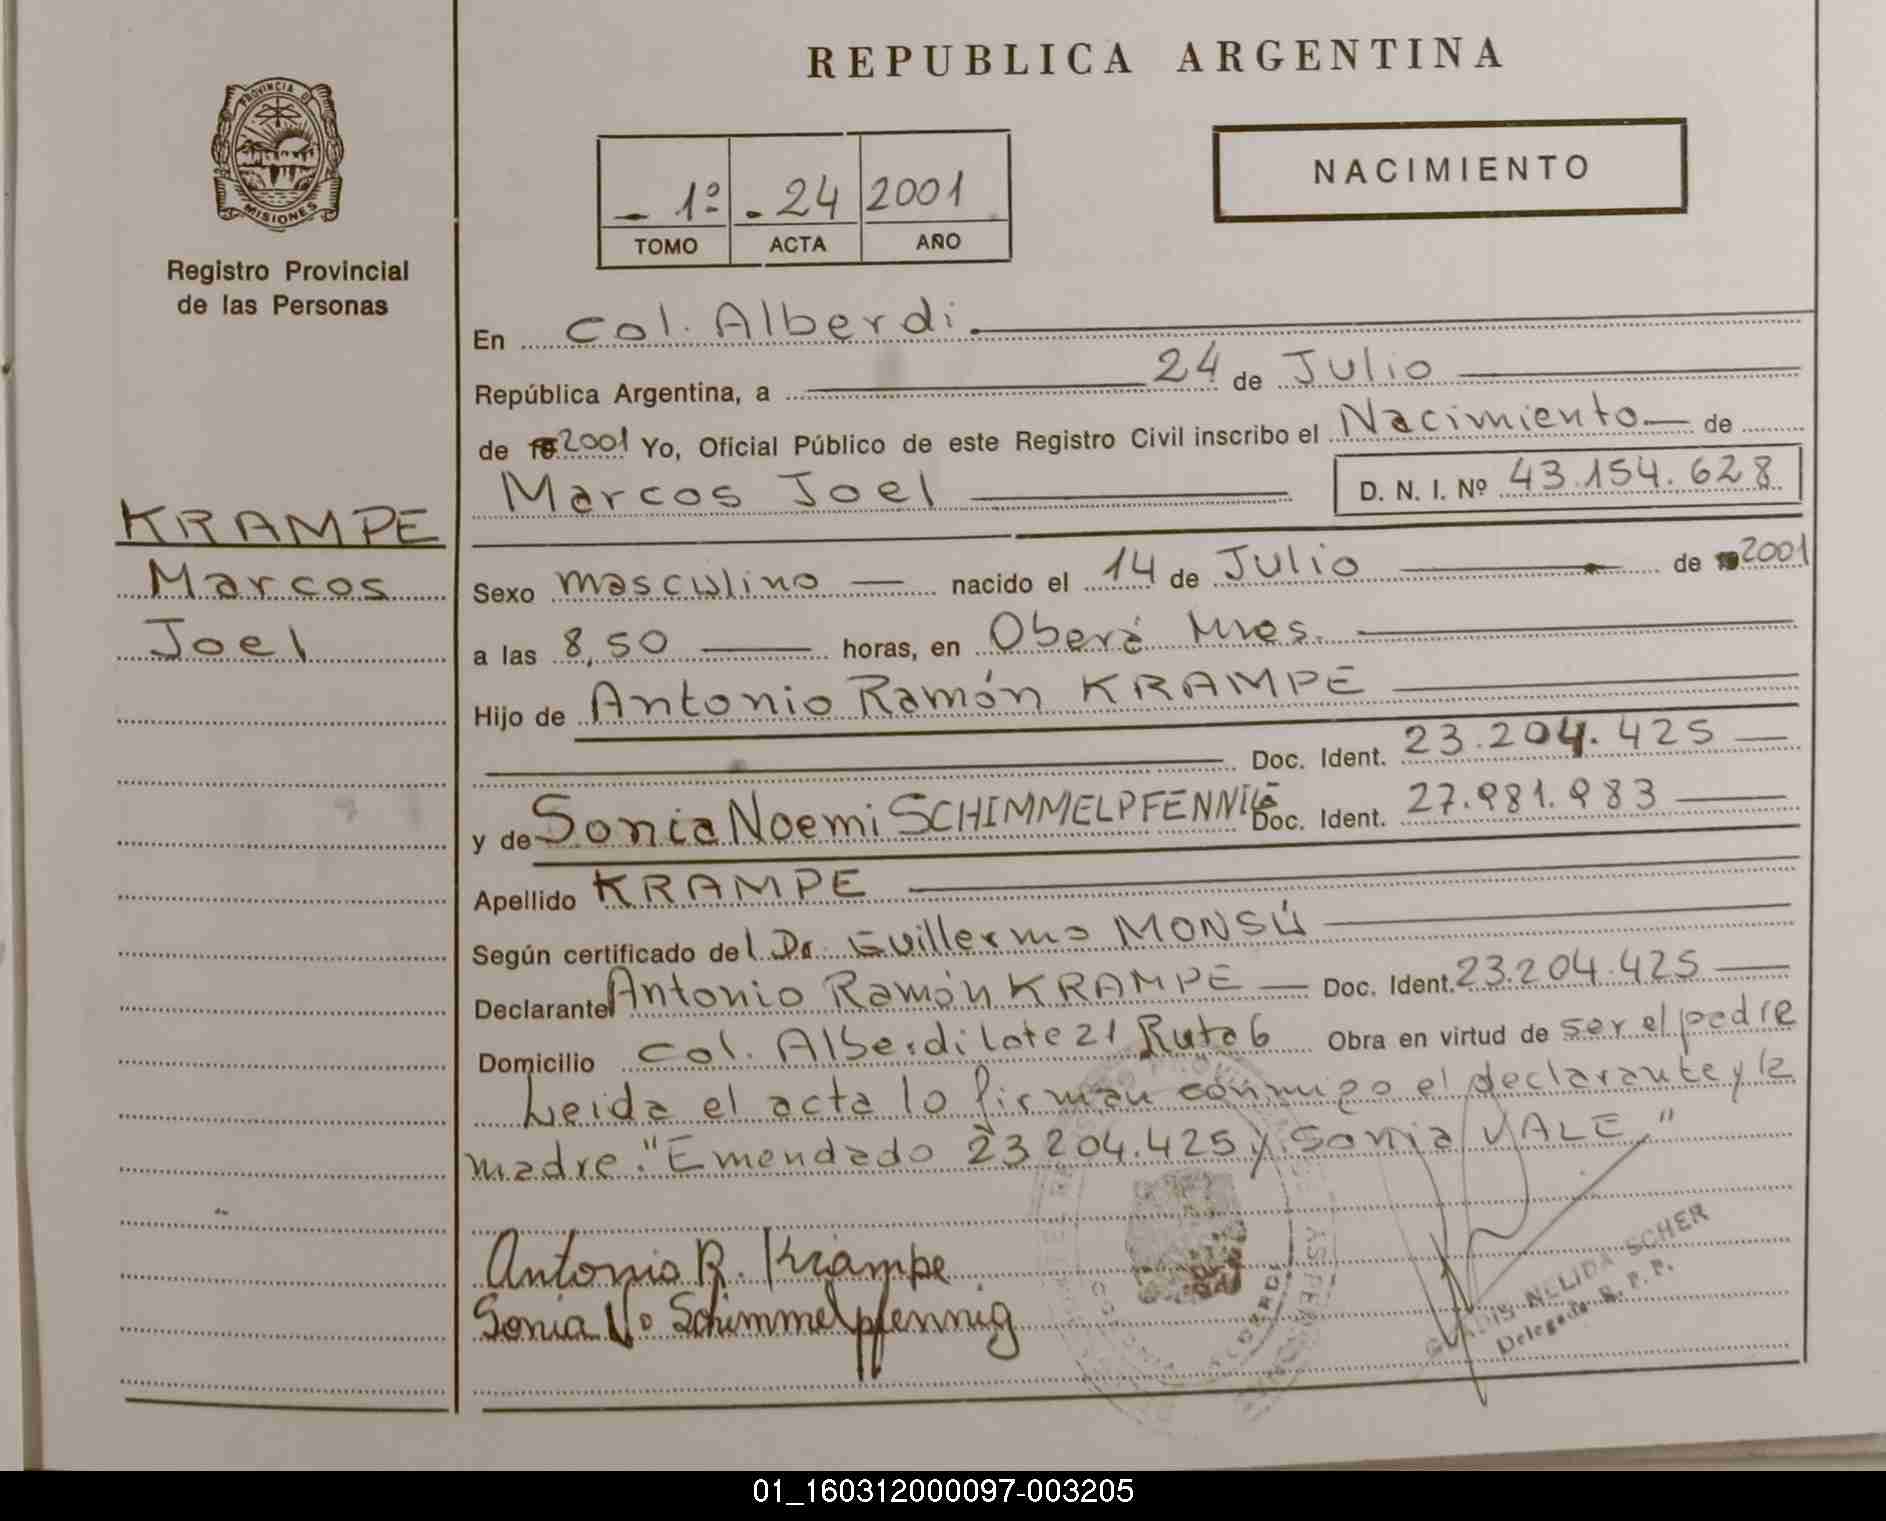 REPUBLICA ARGENTINA
PROVINCIA DE
MISIONES
Registro Provincial
de las Personas
NACIMIENTO
1º 24 2001
TOMO ACTA AÑO
En Col. Alberdi.
República Argentina, a 24 de Julio
de 2001 Yo, Oficial Público de este Registro Civil inscribo el Nacimiento de
Marcos Joel D. N. I. Nº 43.154.628
KRAMPE
Marcos
Joel
Sexo masculino nacido el 14 de Julio de 2001
a las 8,50 horas, en Oberá Mnes.
Hijo de Antonio Ramón KRAMPE
Doc. Ident. 23.204.425
y de Sonia Noemi SCHIMMELPFENNIG Doc. Ident. 27.981.983
Apellido KRAMPE
Según certificado del Dr. Guillermo MONSÚ
Declarante Antonio Ramón KRAMPE Doc. Ident. 23.204.425
Domicilio Col. Alberdi Lote 21 Ruta 6 Obra en virtud de ser el padre
Leida el acta lo firman conmigo el declarante y la
madre. "Emendado 23204.425 y Sonia VALE"
Antonio R. Krampe
Sonia N. Schimmelpfennig
NELIDA SCHER
Delegada R. P. P.
01_160312000097-003205